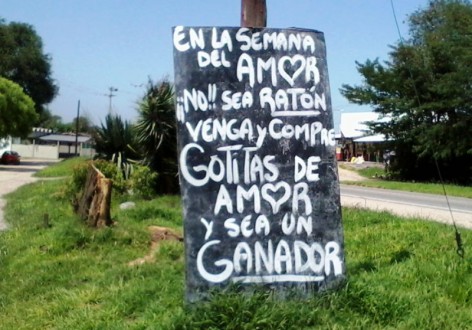 EN LA SEMANA
DEL AMOR
¡¡NO!! SEA RATÓN
VENGA y COMPRE
GOTITAS DE
AMOR
y SEA UN
GANADOR